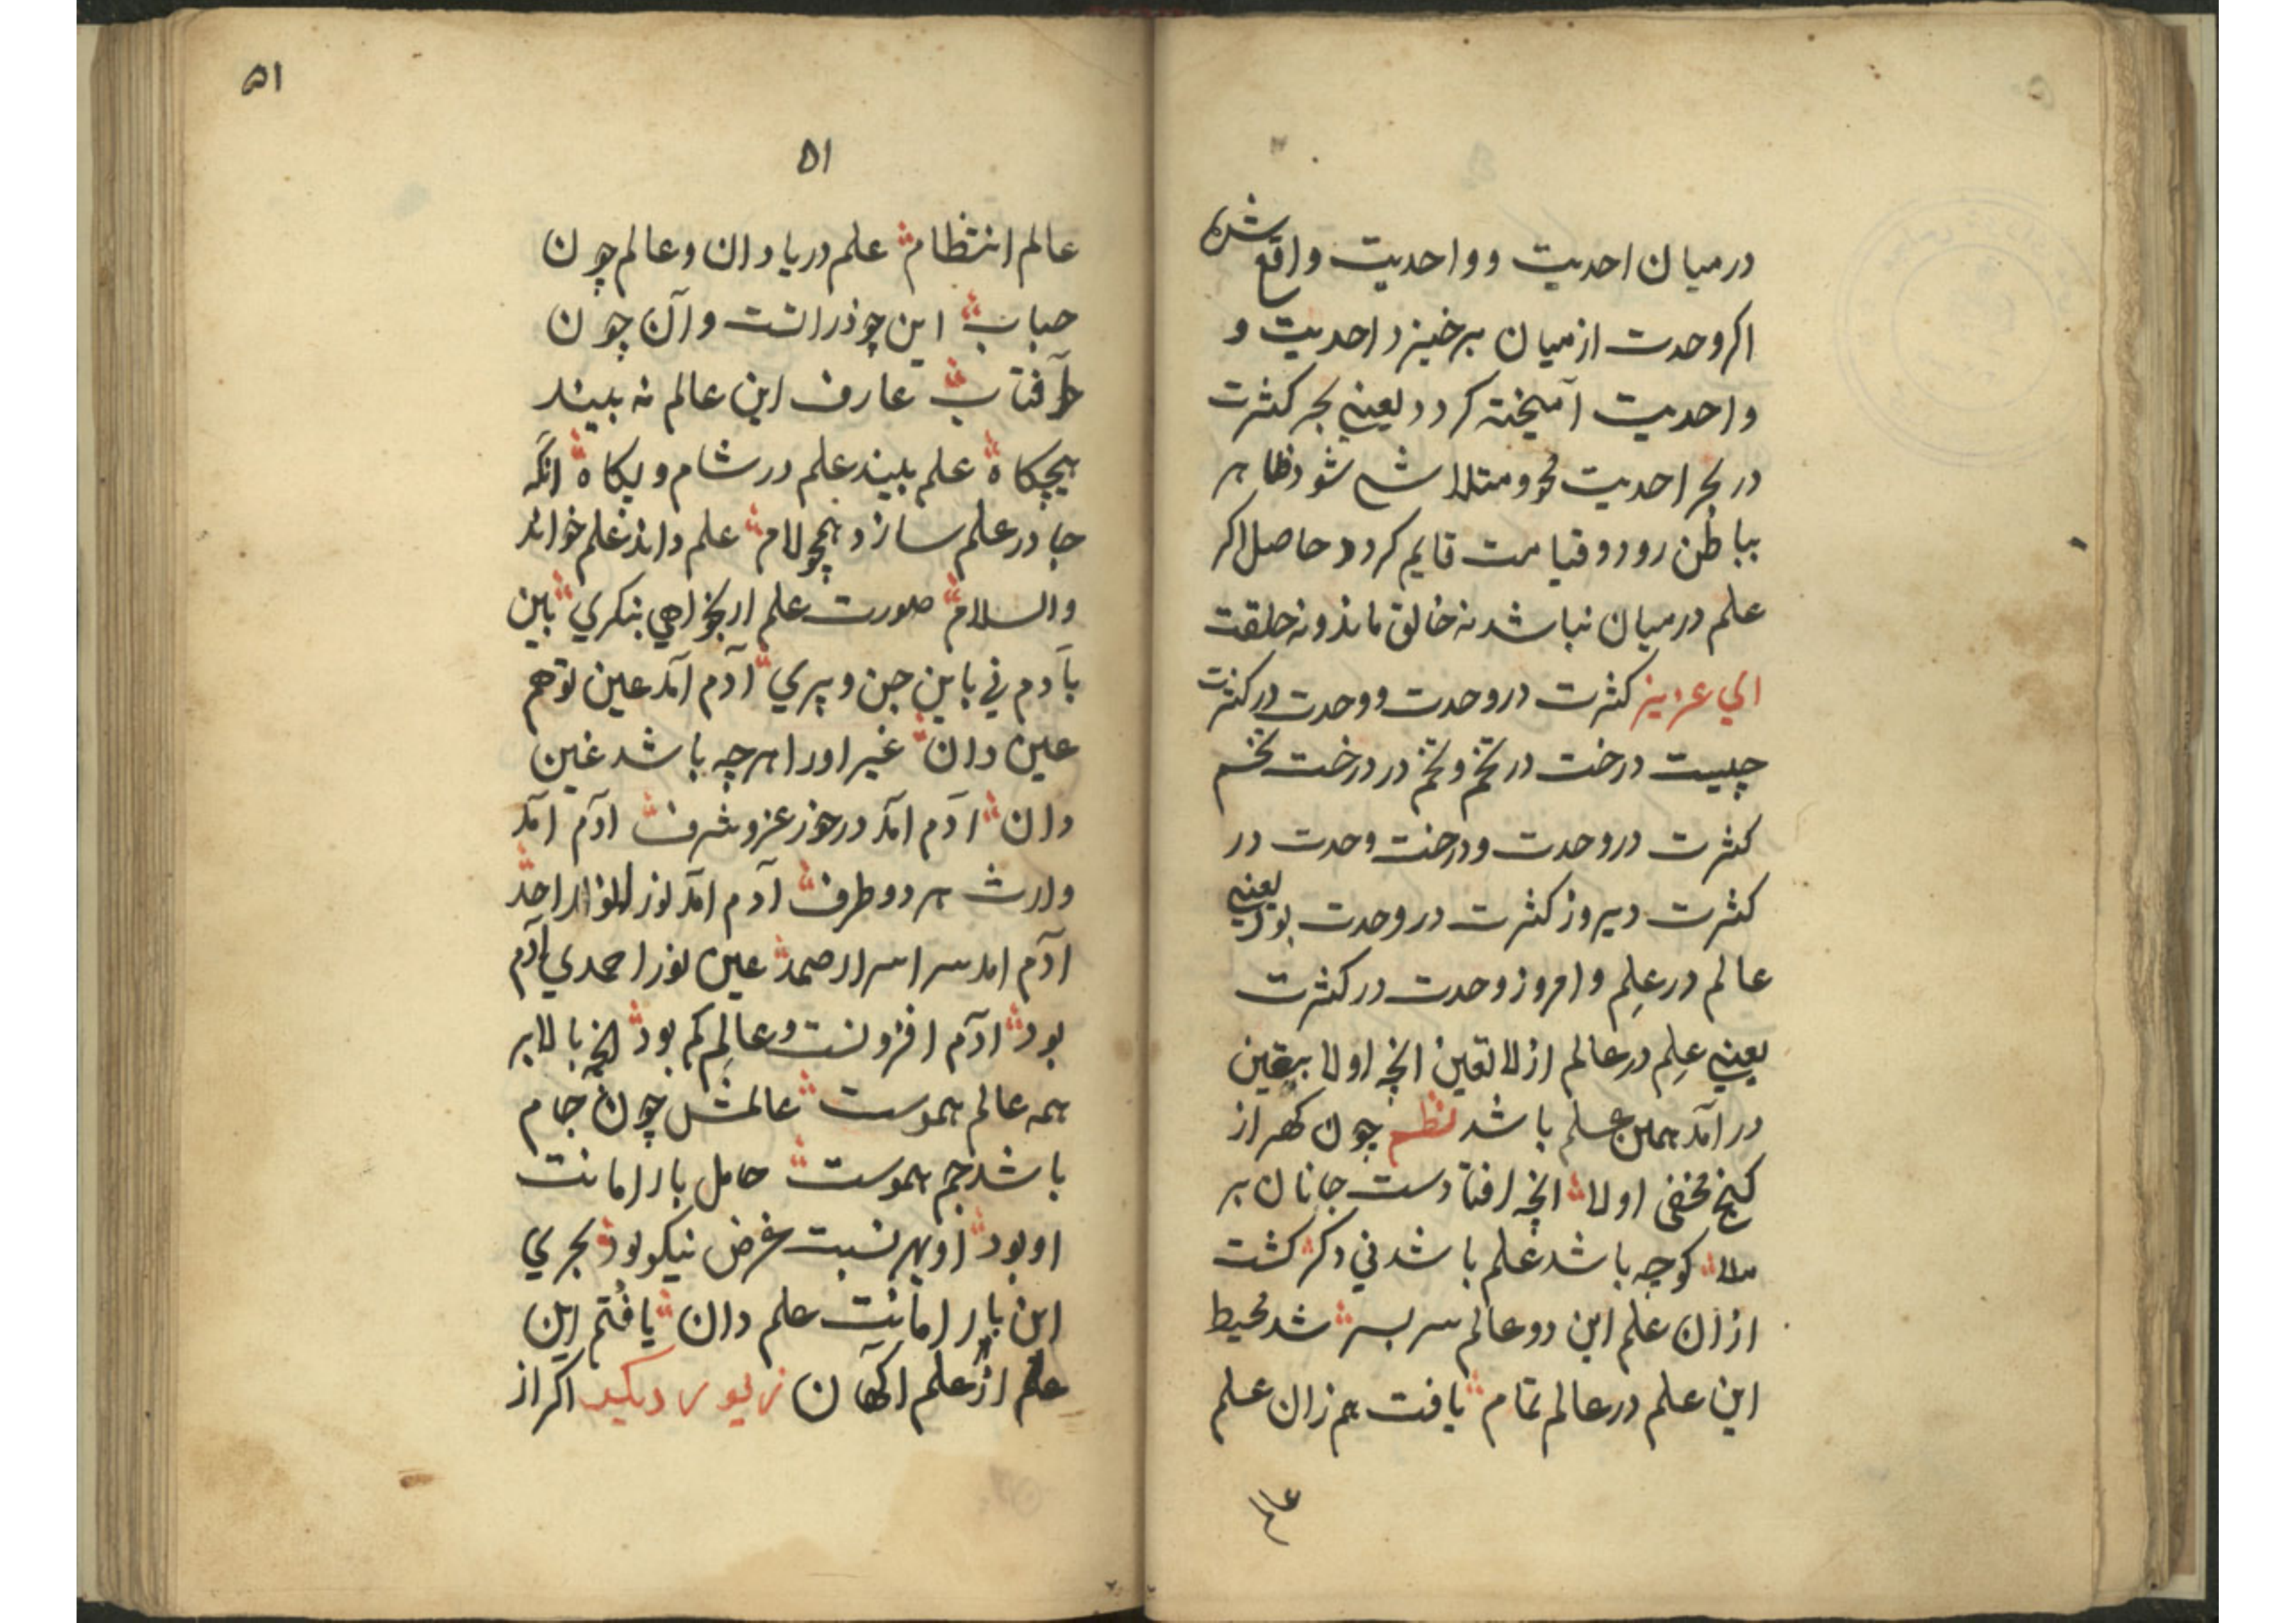 درمیان احدیت و واحدیت واقع شده
اکر وحدت از میان برخیزد احدیت و
واحدیت آمیخته کردد یعنی بحر کثرت
در بحر احدیت محو و متلاشی شود ظاهر
بباطن رود و قیامت قایم کردد حاصل اکر
علم درمیان نباشد نه خالق ماند و نه خلقت
ای عزیز کثرت در وحدت و وحدت در کثرت
چیست درخت در تخم و تخم در درخت تخم
کثرت در وحدت و درخت وحدت در
کثرت دیروز کثرت در وحدت بود یعنی
عالم در علم و امروز وحدت در کثرت
یعنی علم در عالم از لاتعین انچه اولا بیقین
در آمد همین علم باشد نظم چون کهر از
کنج مخفی اولا انچه افتاد ست جانان بر
ملا کوچه باشد علم باشد نی دکر کشت
از ان علم این دو عالم سر بسر شد محیط
این علم در عالم تمام یافت هم زان علم
عالم
۵۱
۵۱
عالم انتظام علم دریا دان و عالم چون
حباب این چو ذراتست و آن چون
آفتاب عارف این عالم نه بیند
هیچکاه علم بیند علم در شام و پکاه انکه
جا در علم سازد همچو لام علم داند علم خواند
والسلام صورت علم ار بخواهی بنکری باین
بآدم نی باین جن و پری آدم آمد عین تو هم
عین دان غیر او را هرچه باشد غین
دان آدم آمد در خور عز و شرف آدم آمد
وارث هر دو طرف آدم آمد نور احد
آدم امد سر اسرار صمد عین نور احمدی آدم
بود آدم افزونست و عالم کم بود انچه بالا بر
همه عالم هموست عالمش چون جام
باشد جم هموست حامل بار امانت
او بود او بهر نسبت غرض نیکو بود بحری
این بار امانت علم دان یافتم این
علم از علم اکهان زیور دیکر اکر از